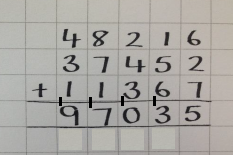 48216
37452
+ 11367
97035